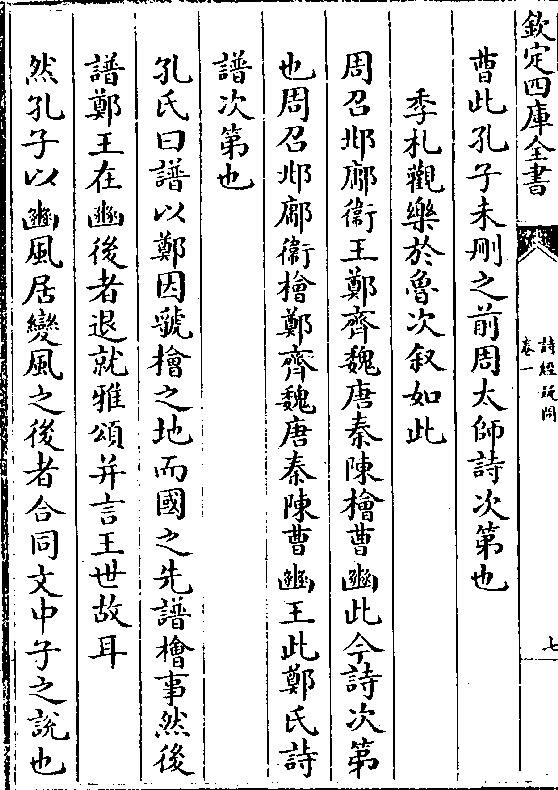 欽定四庫全書
詩經說闕
卷一
七
曹此孔子未刪之前周太師詩次第也
季札觀樂於魯次叙如此
周召邶鄘衞王鄭齊魏唐秦陳檜曹豳此今詩次第
也周召邶鄘衞檜鄭齊魏唐秦陳曹豳王此鄭氏詩
譜次第也
孔氏曰譜以鄭因虢檜之地而國之先譜檜事然後
譜鄭王在豳後者退就雅頌并言王世故耳
然孔子以豳風居變風之後者合同文中子之說也